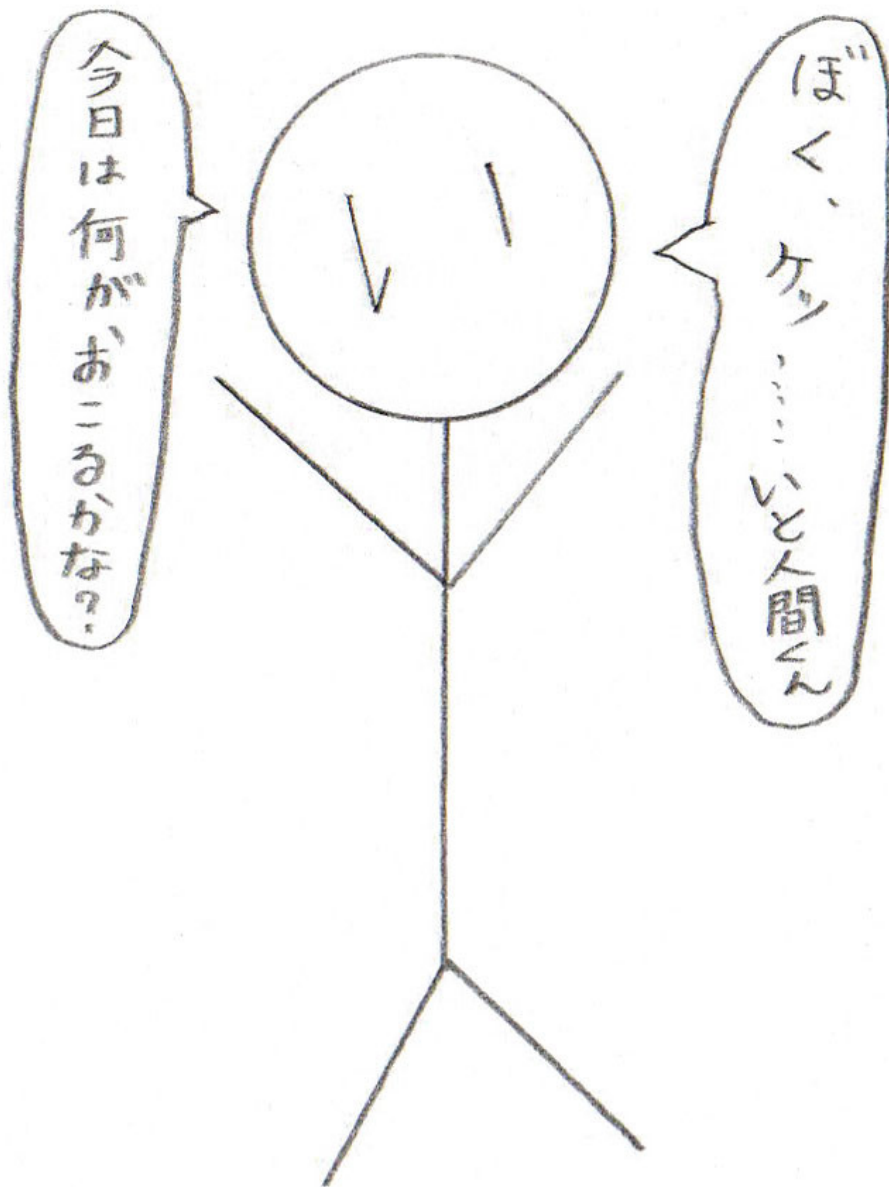 ぼく、ケツ……いと人間くん
今日は何がおこるかな？